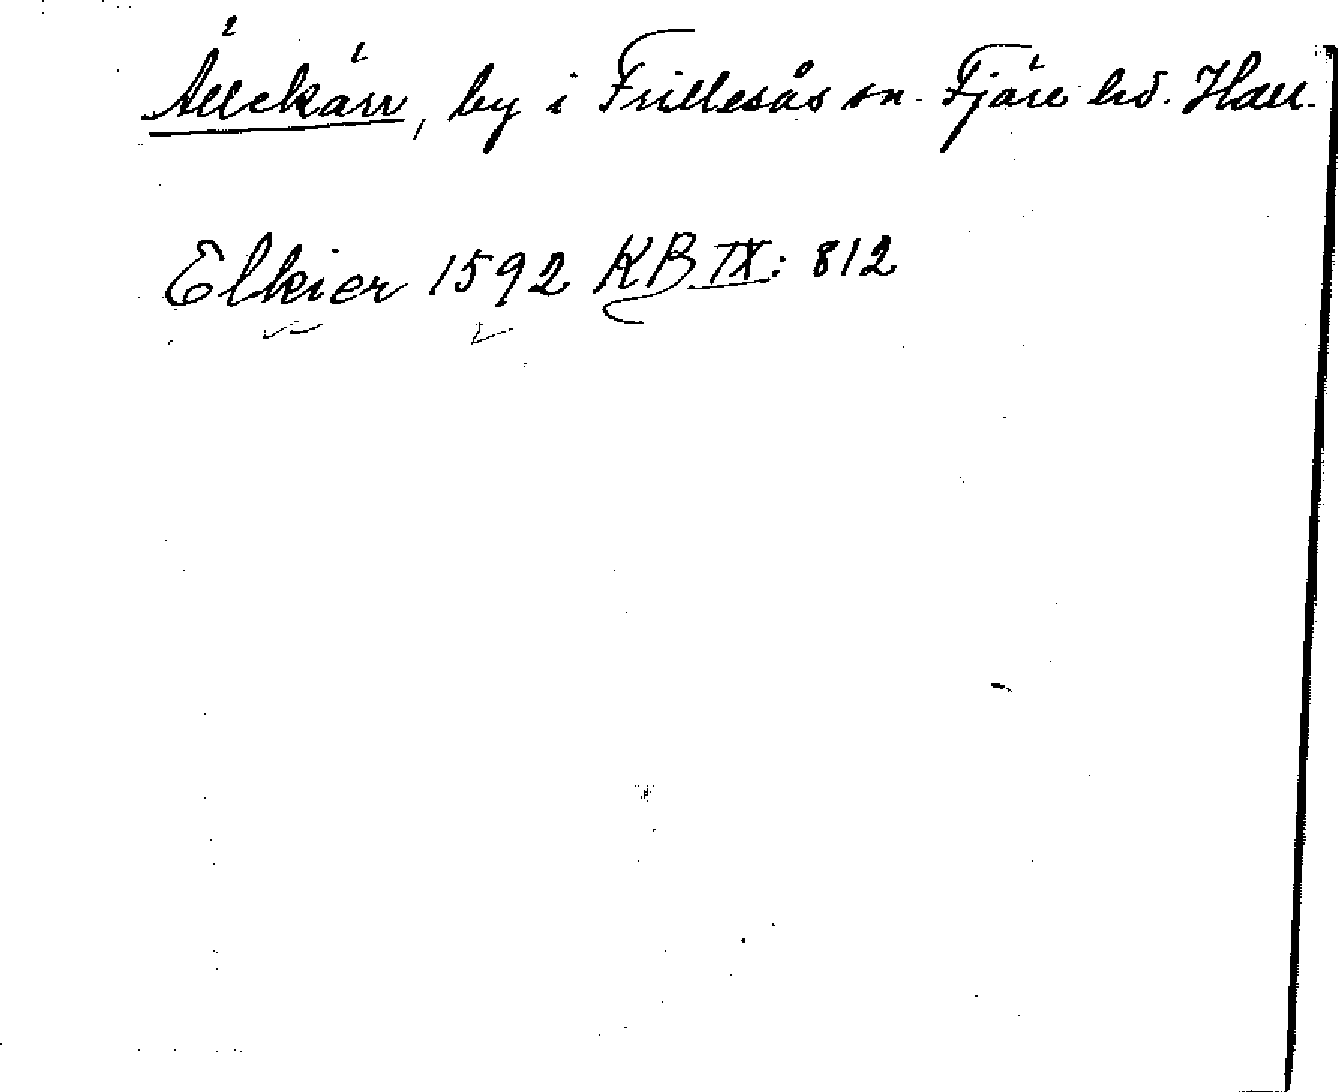 Ällekärr, by i Frillesås sn. Fjäre hd. Hall.
Elkier 1592 KB IX: 812